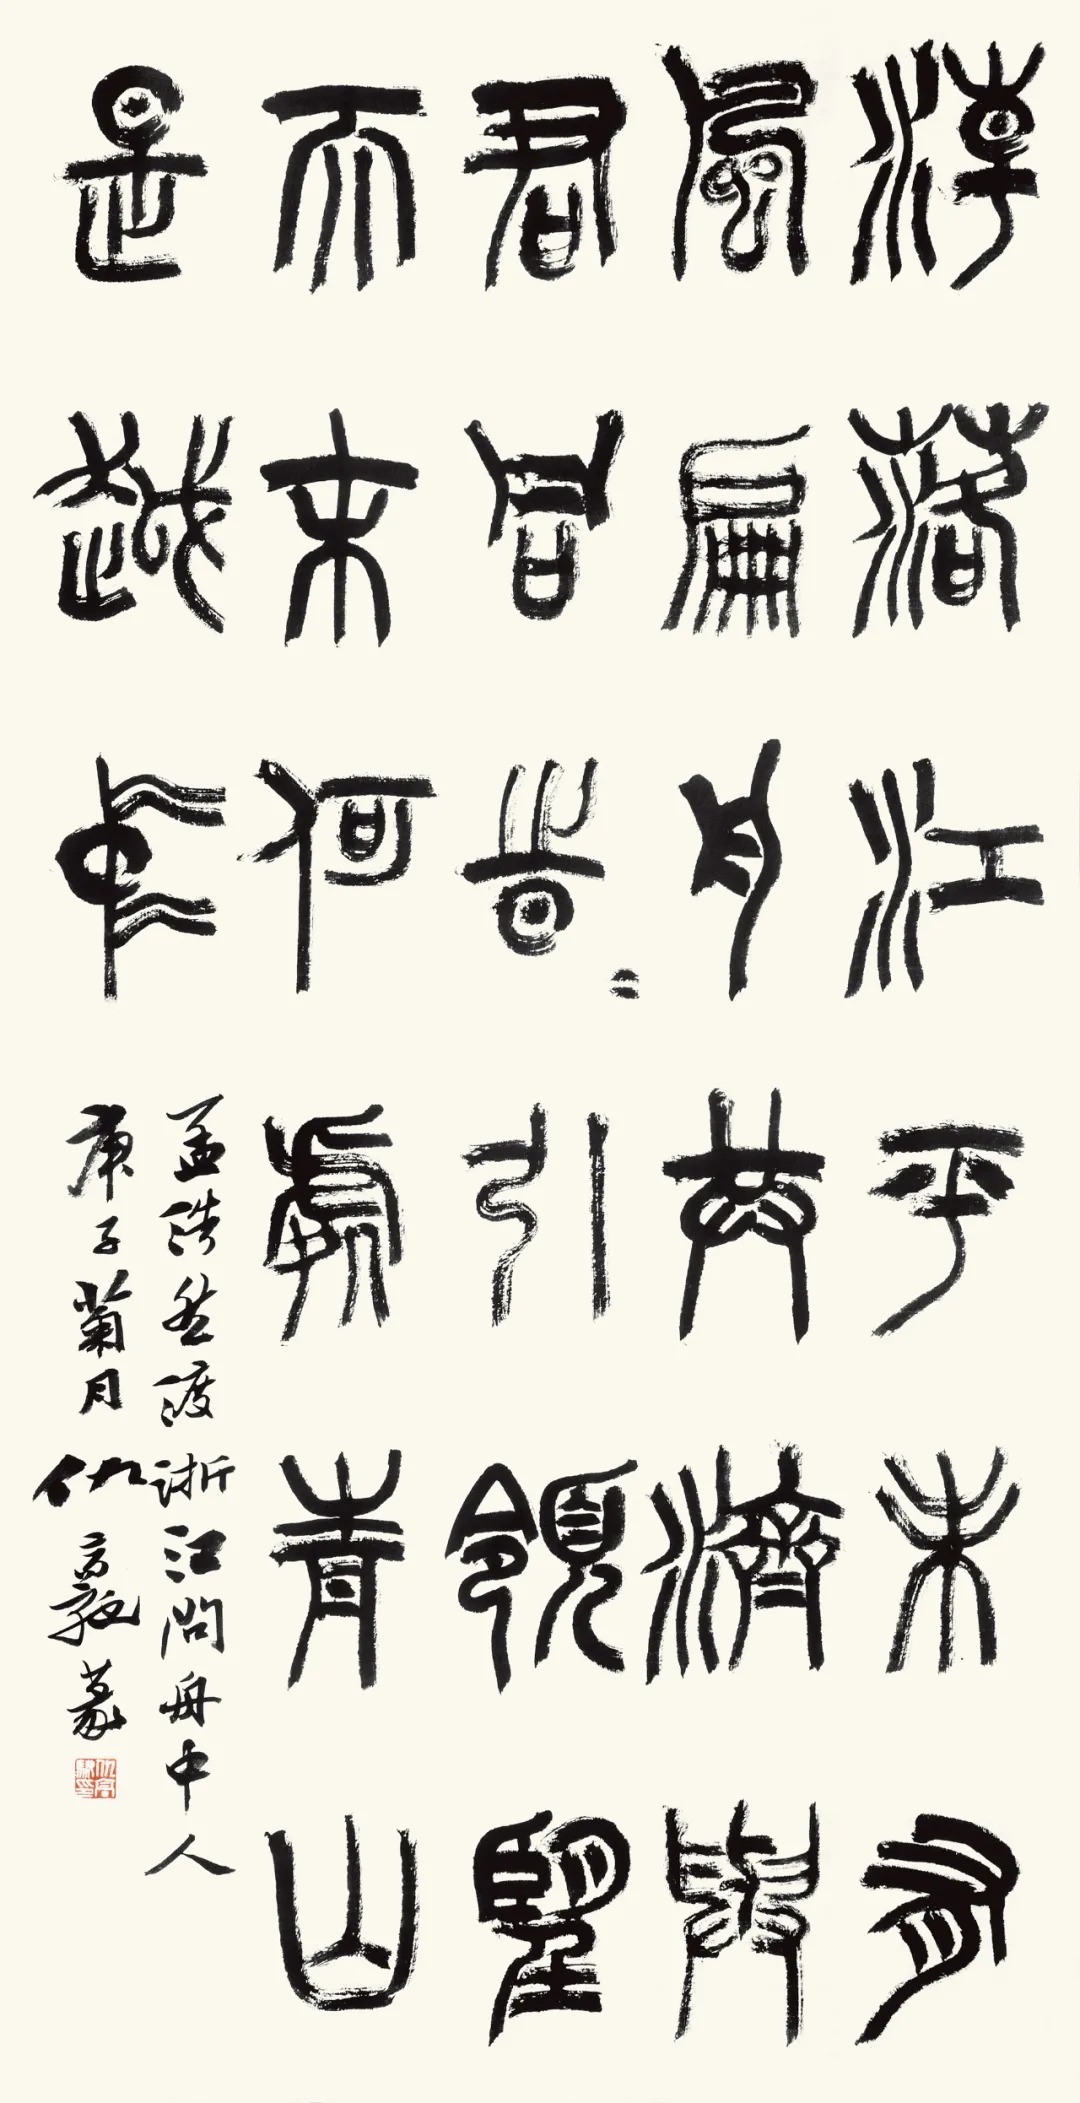 潮落江平未有
風扁舟共濟與
君同時〻引領望
天末何處青山
是越中
孟浩然渡浙江問舟中人
庚子菊月仇高馳篆
仇高馳印